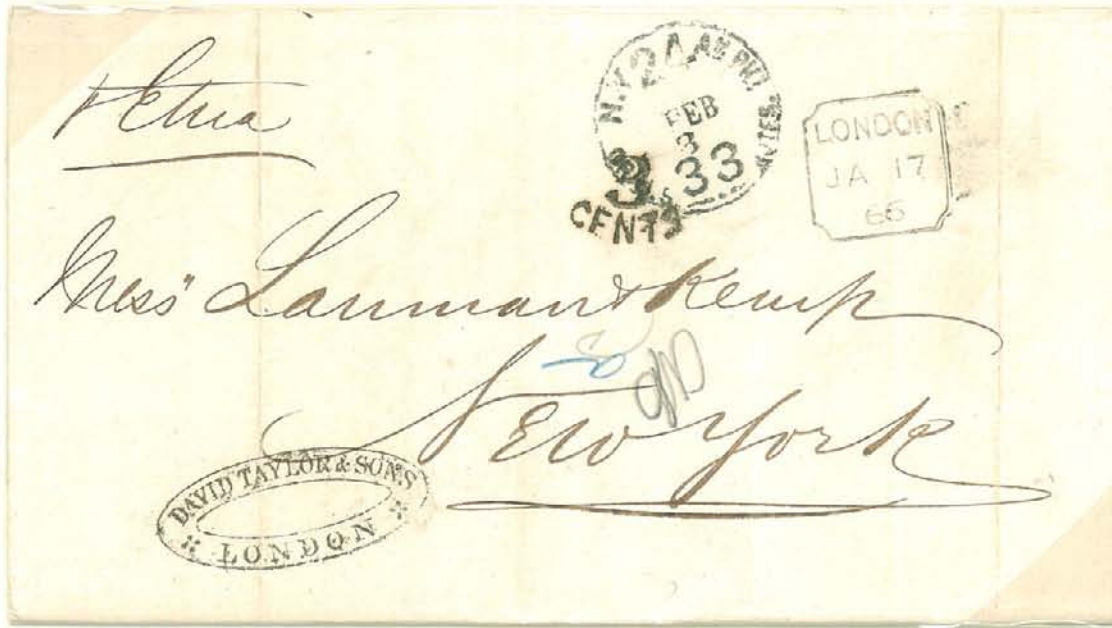 Etna
N.Y. 24 AM. PKT.
FEB
3
33
3 CENTS
LONDON
JA 17
65
Mess^rs Lanman & Kemp
New York
DAVID TAYLOR & SONS
LONDON